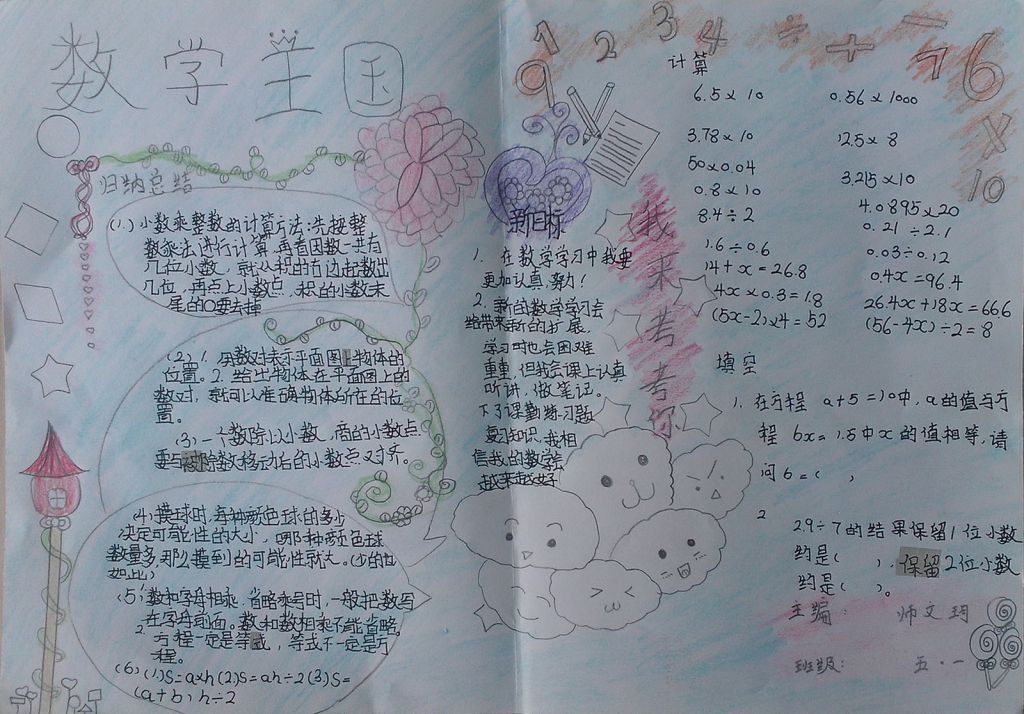 数学王国
归纳总结
(1.)小数乘整数的计算方法:先按整
数乘法进行计算,再看因数一共有
几位小数,就从积的右边起数出
几位,再点上小数点,积的小数末
尾的0要去掉
(2)1.用数对表示平面图上物体的
位置。2.给出物体在平面图上的
数对,就可以准确物体所在的位
置。
(3)一个数除以小数,商的小数点
要与被除数移动后的小数点对齐。
(4)摸球时,每种颜色球的多少
决定可能性的大小,哪种颜色球
数量多,那么摸到的可能性就大。(少的也
如此)
(5)1.数和字母相乘,省略乘号时,一般把数写
在字母前面。数和数相乘不能省略。
2.方程一定是等式,等式不一定是方
程。
(6)(1)S=a×h(2)S=ah÷2(3)S=
(a+b)h÷2
1 2 3 4 ÷ + − 7 6
9
×
10
新目标
1.在数学学习中我要
更加认真,努力!
2.新的数学学习会
给带来新的扩展,
学习时也会困难
重重,但我会课上认真
听讲,做笔记。
下了课勤练习题
复习知识,我相
信我的数学会
越来越好
我来考考你
计算
6.5×10 0.56×1000
3.78×10 12.5×8
50×0.04 3.215×10
0.8×10 4.0895×20
8.4÷2 0.21÷2.1
1.6÷0.6 0.03÷0.12
14+x=26.8 0.4x=96.4
4x×0.3=1.8 26.4x+18x=666
(5x-2)×4=52 (56-4x)÷2=8
填空
1.在方程 a+5=10中,a的值与方
程 bx=1.5中x的值相等,请
问b=( )
2
29÷7的结果保留1位小数
约是( ),保留2位小数
约是( )。
主编: 师文玥
班级: 五·一